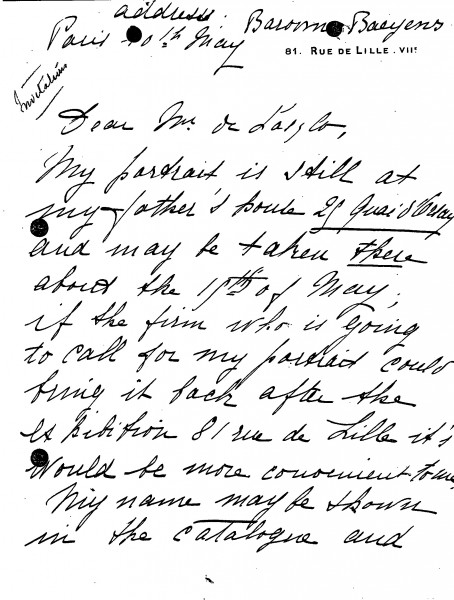 address: Baronne Baeyens
Paris 10th May
81. RUE DE LILLE. VIIe
Invitations
Dear Mr. de László,
My portrait is still at
my father's house 29 Quai d'Orsay
and may be taken there
about the 15th of May,
if the firm who is going
to call for my portrait could
bring it back after the
exhibition 81 rue de Lille it's
would be more convenient to me,
My name may be shown
in the catalogue and